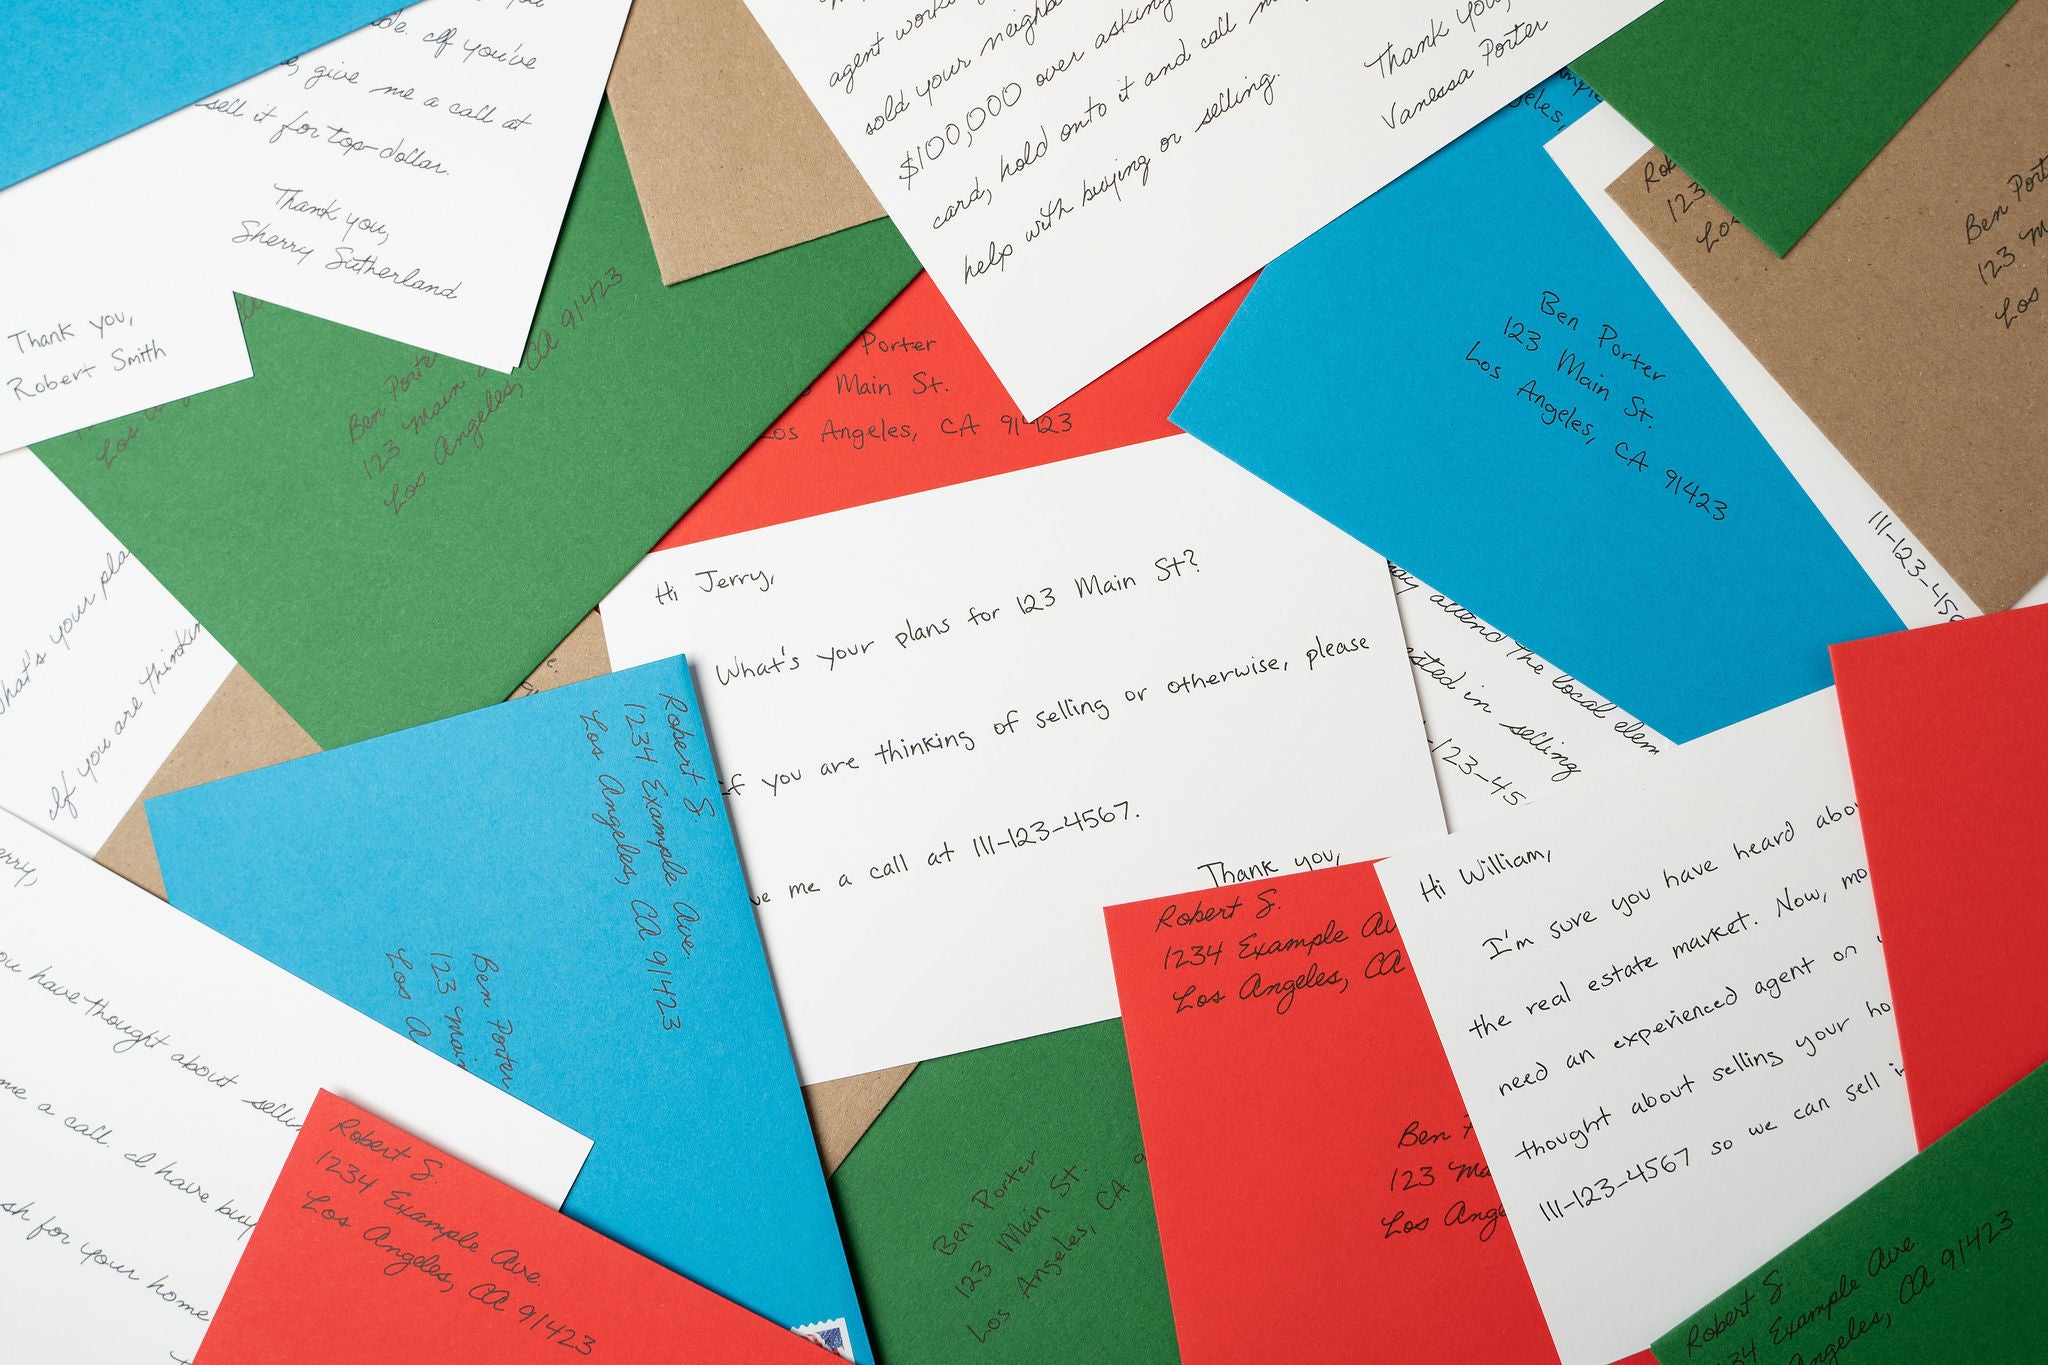 you
If you've
give me a call at
sell it for top-dollar.
Thank you,
Sherry Sutherland
Thank you,
Robert Smith
agent
sold your
$100,000 over asking
card, hold onto it and call
help with buying or selling.
Thank you,
Vanessa Porter
Ben
123 Main
Los Angeles, CA 91423
Los
Porter
Main St.
Los Angeles, CA 91423
Ben Porter
123 Main St.
Los Angeles, CA 91423
123
Ben
123
Los
111-123-45
Hi Jerry,
What's your plans for 123 Main St?
If you are thinking of selling or otherwise, please
me a call at 111-123-4567.
Thank you,
attend the local elem
in selling
123-45
What's your
If you are thinking
Robert S.
1234 Example Ave.
Los Angeles, CA 91423
Ben Porter
123 Main
Los A
have thought about
me a call. I have
for your home
Robert S.
1234 Example Ave.
Los Angeles, CA 91423
Ben Porter
123 Main St.
Los Angeles, CA
Robert S.
1234 Example
Los Angeles, CA
Ben
123
Los
Hi William,
I'm sure you have heard
the real estate market. Now,
need an experienced agent on
thought about selling your
111-123-4567 so we can sell
Robert S.
1234 Example Ave.
Angeles, CA 91423